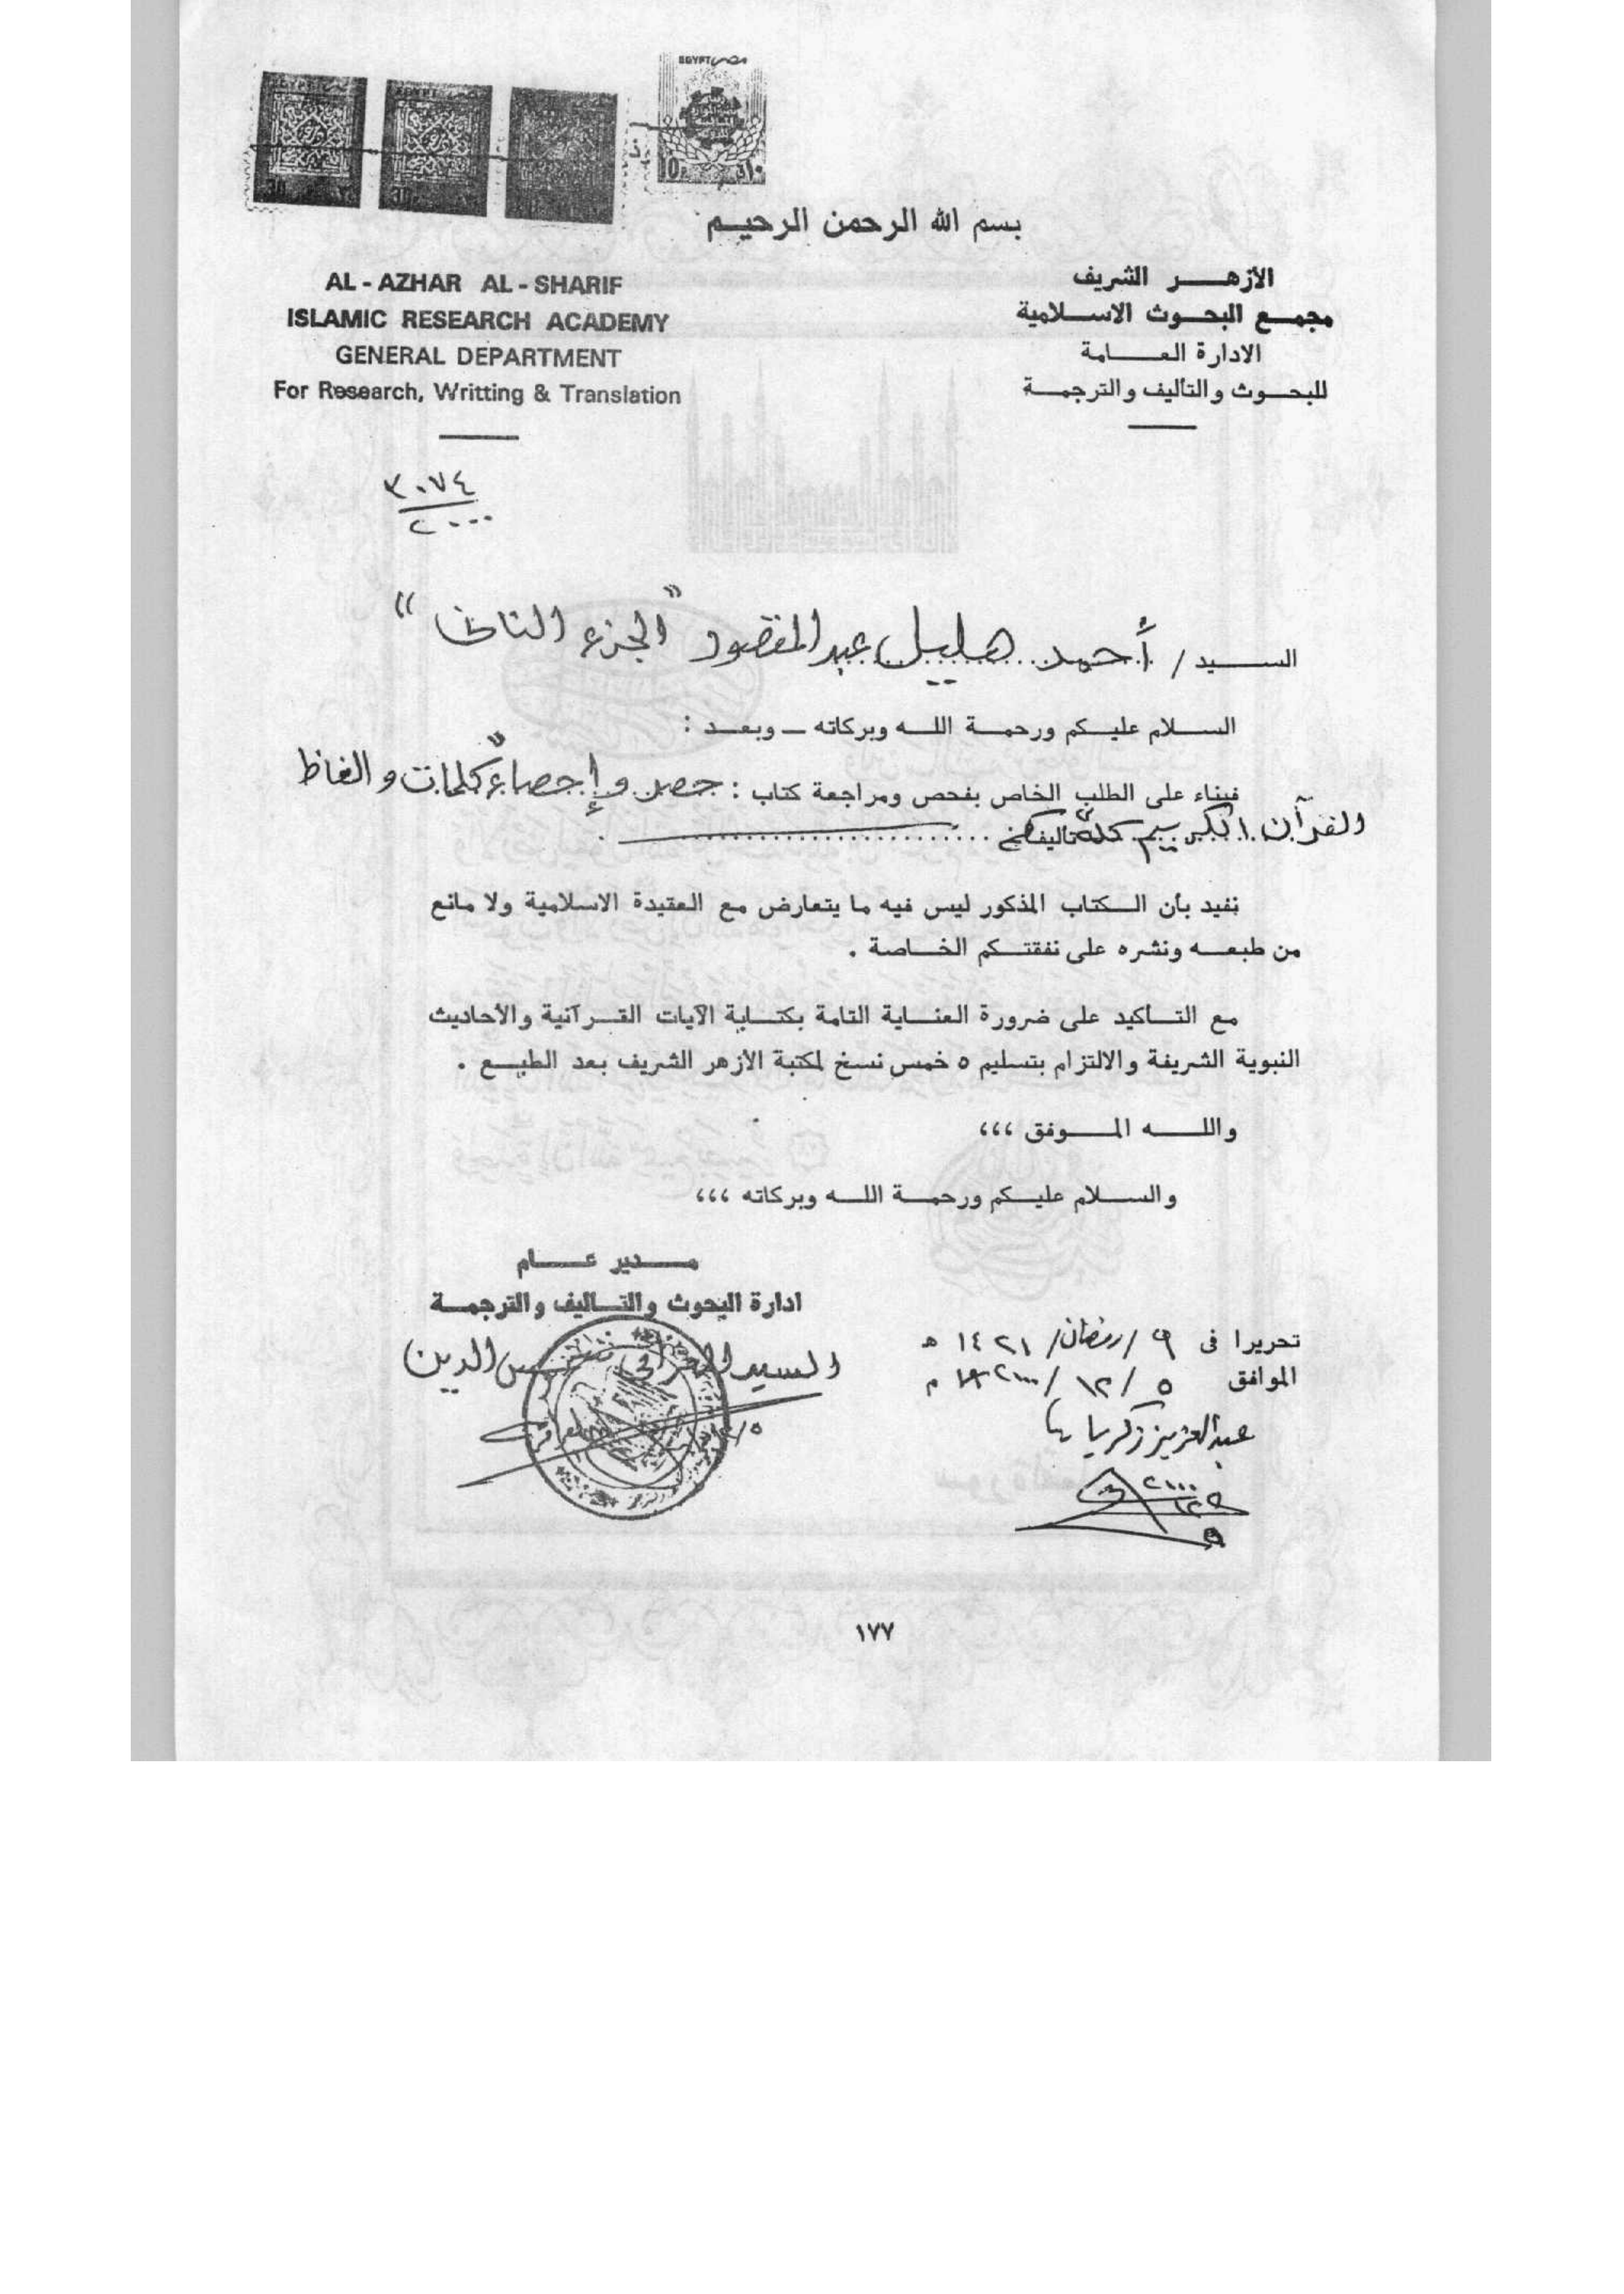 EGYPT مصر
بسم الله الرحمن الرحيم
الأزهر الشريف
مجمع البحوث الاسلامية
الادارة العامة
للبحوث والتأليف والترجمة
AL - AZHAR AL - SHARIF
ISLAMIC RESEARCH ACADEMY
GENERAL DEPARTMENT
For Research, Writting & Translation
٣٠٧٤
٢٠٠٠
السيد / أحمد هليل عبد المقصود "الجزء الثانى"
السلام عليكم ورحمة الله وبركاته – وبعد :
فبناء على الطلب الخاص بفحص ومراجعة كتاب : حصر وإحصاء كلمات والفاظ
القرآن الكريم تأليفكم .
نفيد بأن الكتاب المذكور ليس فيه ما يتعارض مع العقيدة الاسلامية ولا مانع
من طبعه ونشره على نفقتكم الخاصة .
مع التأكيد على ضرورة العناية التامة بكتابة الآيات القرآنية والأحاديث
النبوية الشريفة والالتزام بتسليم ٥ خمس نسخ لمكتبة الأزهر الشريف بعد الطبع .
والله الموفق ،،،
والسلام عليكم ورحمة الله وبركاته ،،،
مدير عام
ادارة البحوث والتأليف والترجمة
تحريرا فى ٩ / رمضان / ١٤٢١ هـ
الموافق ٥ / ١٢ / ٢٠٠٠ م
عبد العزيز زكريا
١٧٧